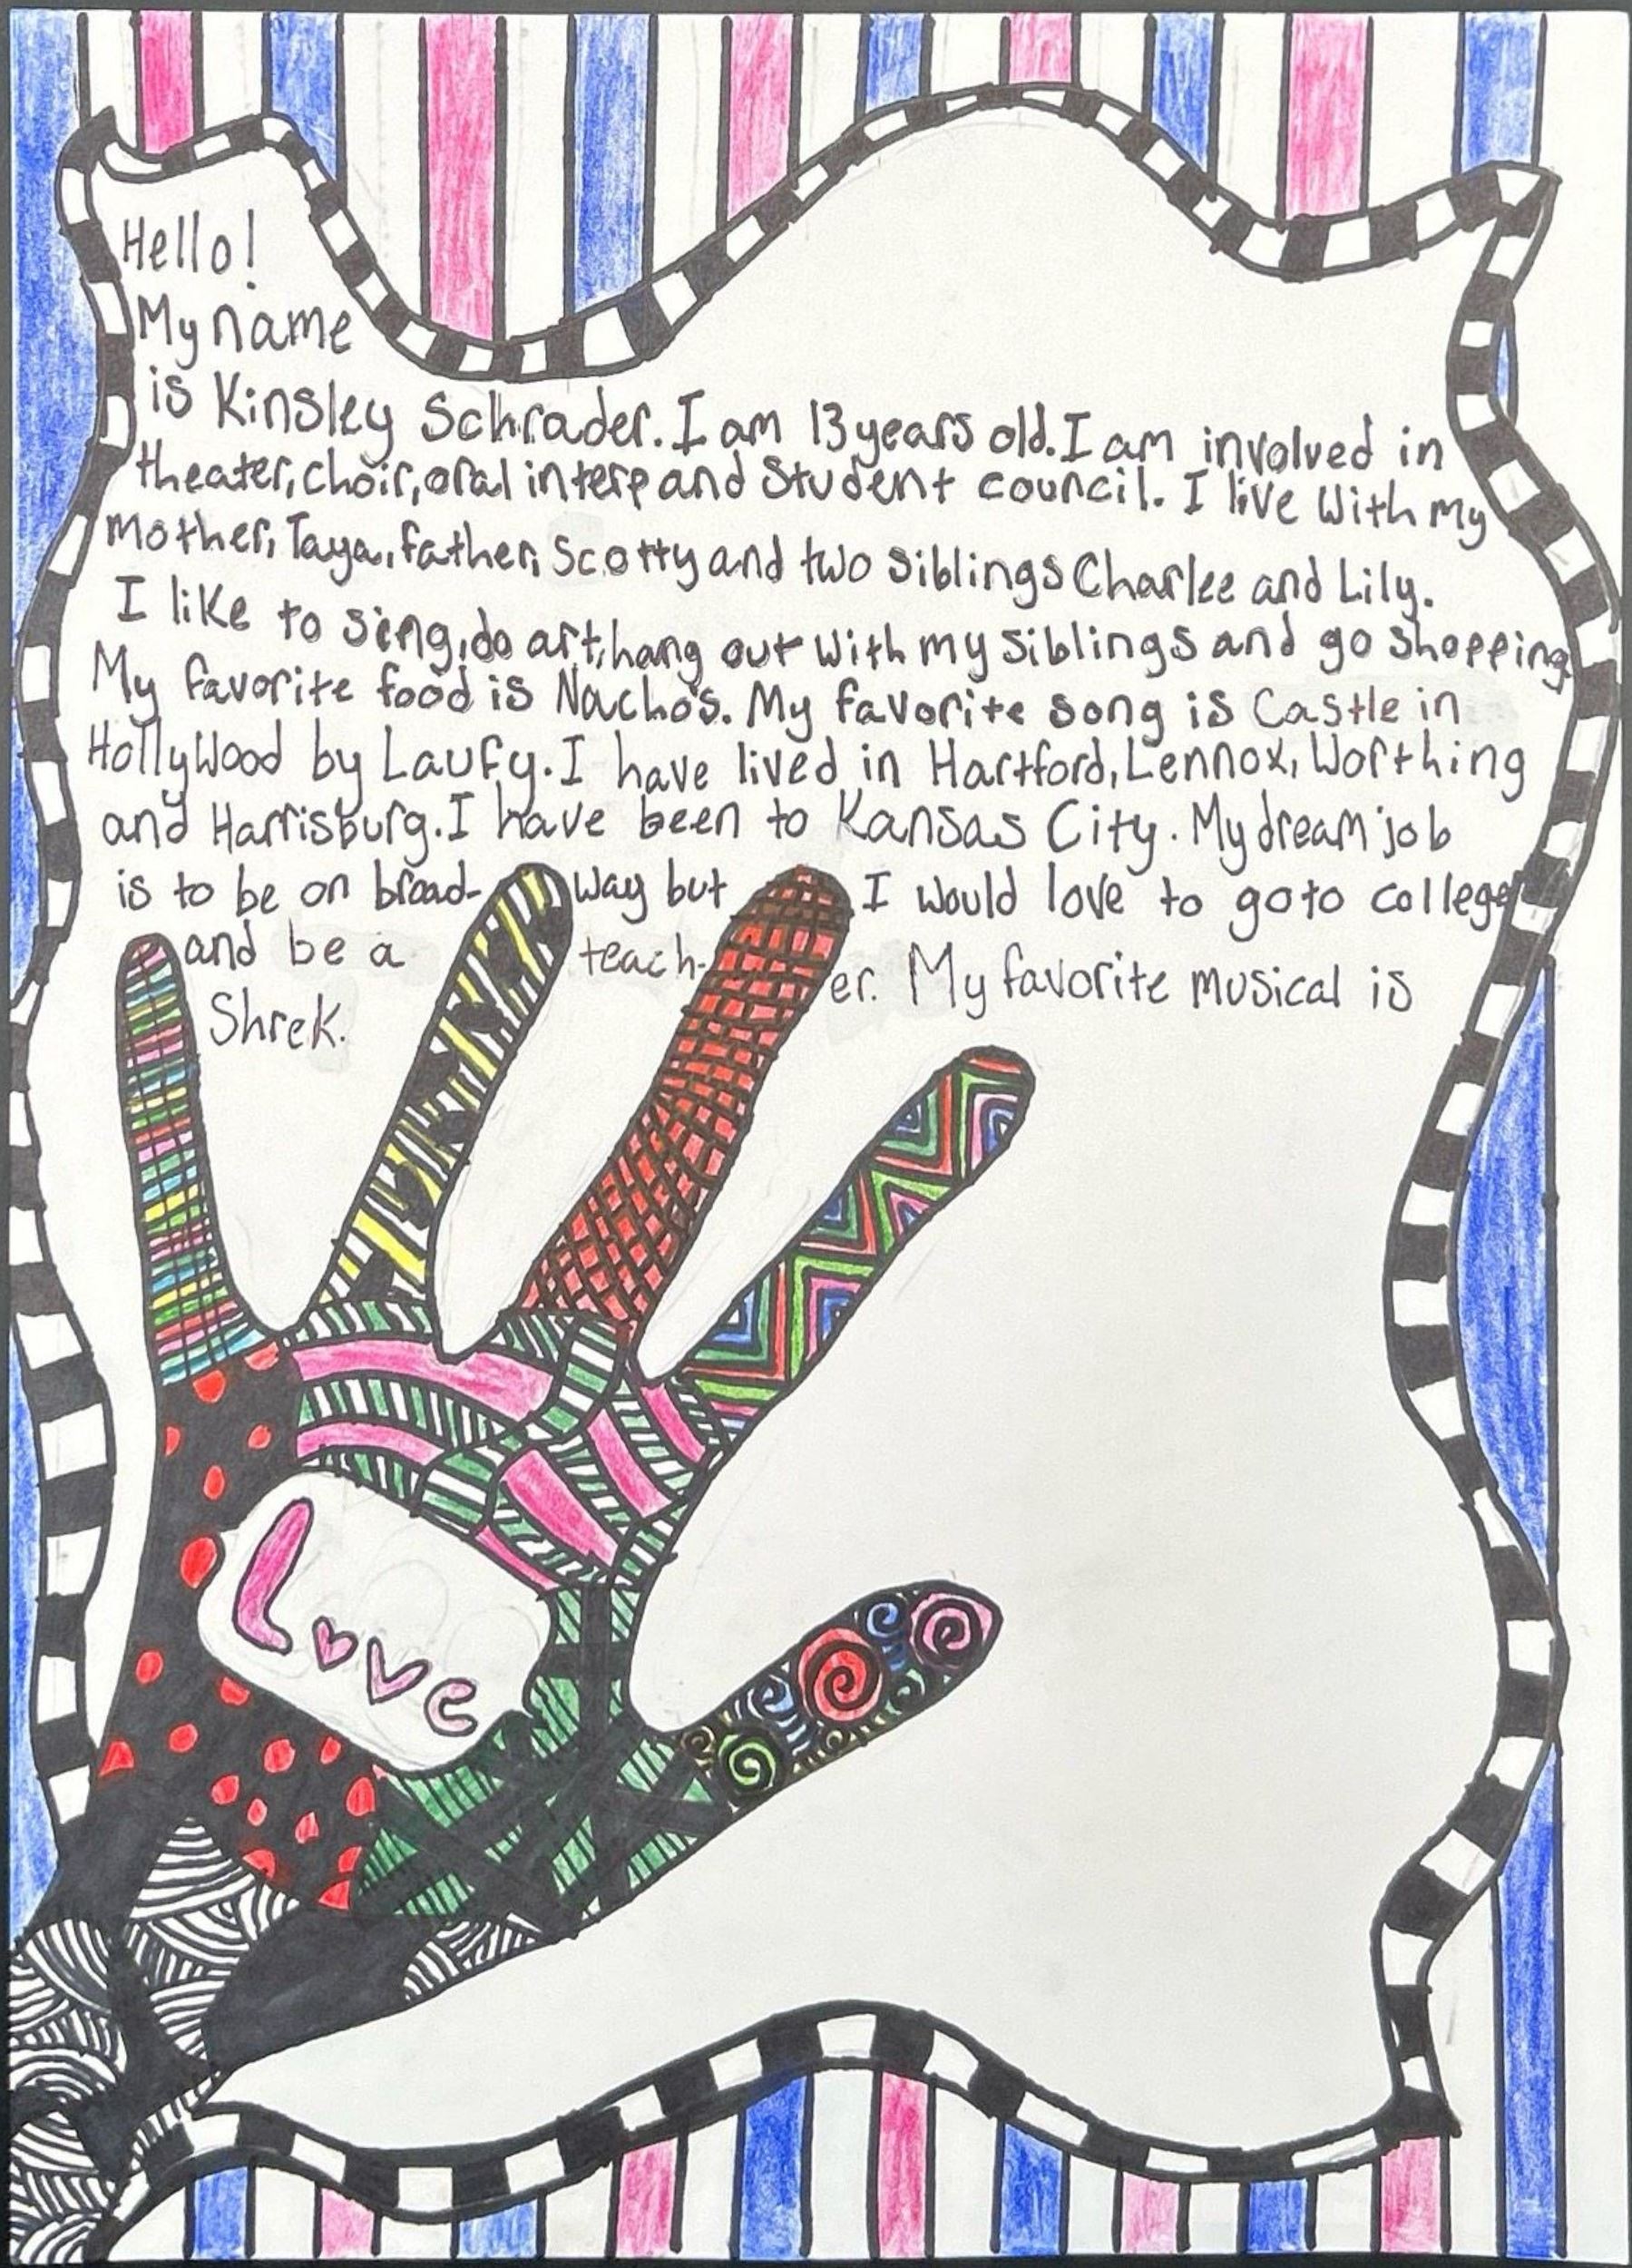 Hello!
My name
is Kinsley Schrader. I am 13 years old. I am involved in
theater, choir, oral interp and Student council. I live with my
mother, Taya, father, Scotty and two siblings Charlee and Lily.
I like to sing, do art, hang out with my siblings and go shopping.
My favorite food is Nacho's. My favorite song is Castle in
Hollywood by Laufy. I have lived in Hartford, Lennox, Worthing
and Harrisburg. I have been to Kansas City. My dream job
is to be on broad- way but I would love to go to college
and be a teach- er. My favorite musical is
Shrek.
Love